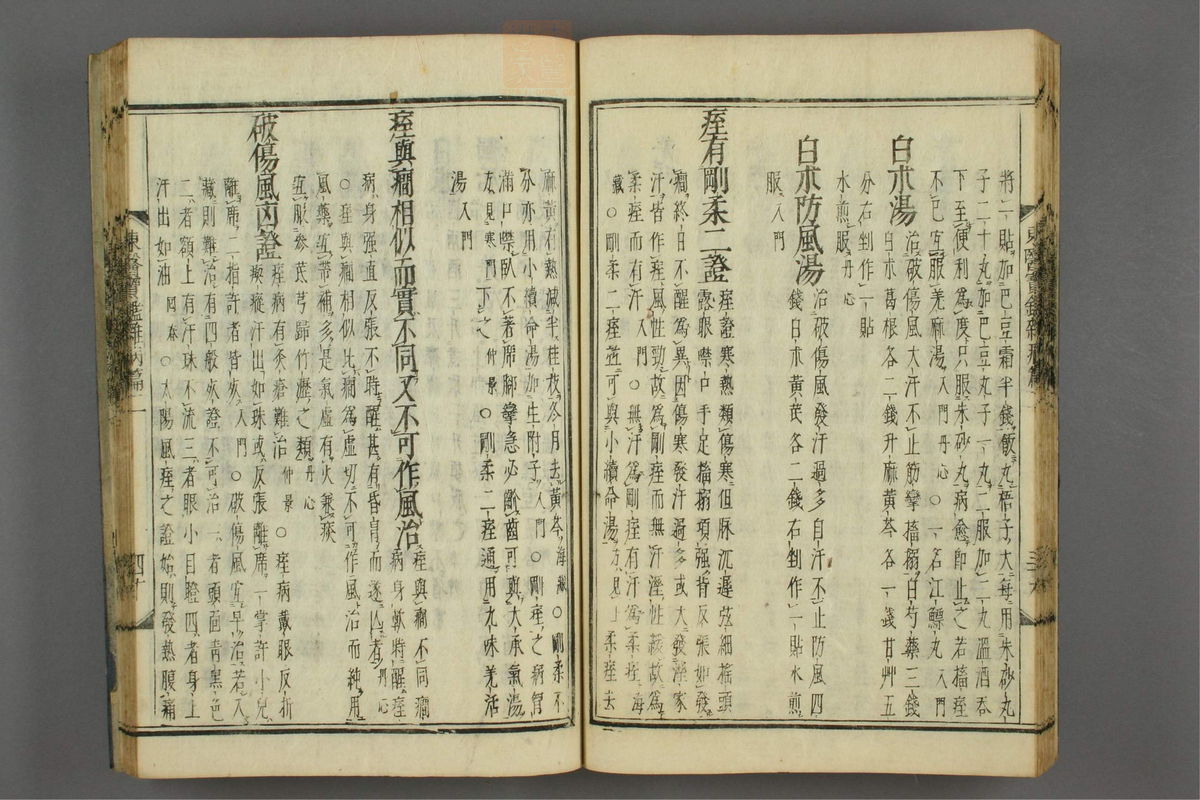 將一貼加巴豆霜半錢飯丸梧子大每用朱砂丸
子二十丸加巴豆丸子一丸二服加二丸溫酒吞
下至便利爲度只服朱砂丸病愈卽止之若搐痙
不已宜服羌麻湯入門丹心○一名江鰾丸入門
白朮湯 治破傷風大汗不止筋攣搐搦白芍藥三錢
白朮葛根各二錢升麻黃芩各一錢甘艸五
分右剉作一貼
水煎服丹心
白朮防風湯 治破傷風發汗過多自汗不止防風四
錢白朮黃芪各二錢右剉作一貼水煎
服入門
痙有剛柔二證 痙證寒熱類傷寒但脉沉遲弦細搖頭
露眼噤口手足搐搦項强背反張如發
癎終日不醒爲異因傷寒發汗過多或大發濕家
汗皆作痙風性勁故爲剛痙而無汗濕性緩故爲
柔痙而有汗入門○無汗爲剛痙有汗爲柔痙海
藏○剛柔二痙並可與小續命湯方見上柔痙去
東醫寶鑑雜病篇
麻黃有熱減半桂枝冷月去黃芩海藏○剛柔不
分亦用小續命湯加生附子入門○剛痙之病胷
滿口噤臥不著席脚攣急必齘齒可與大承氣湯
方見寒門下之仲景○剛柔二痙通用九味羌活
湯入門
痙與癎相似而實不同又不可作風治 痙與癎不同癎
病身軟時醒痙
病身强直反張不時醒甚有昏冐而遂亾者
○痙與癎相似比癎爲虛切不可作風治而純用
風藥宜帶補多是氣虛有火兼痰
宜服參芪芎歸竹瀝之類丹心
破傷風凶證 痙病有灸瘡難治仲景○痙病戴眼反折
瘈瘲汗出如珠或反張離席一掌許小兒
離席二指許者皆死入門○破傷風宜早治若入
藏則難治有四般死證不可治一者頭面靑黑色
二者額上有汗珠不流三者眼小目瞪四者身上
汗出如油回春○太陽風痙之證始則發熱腹痛
東醫寶鑑雜病篇
四十